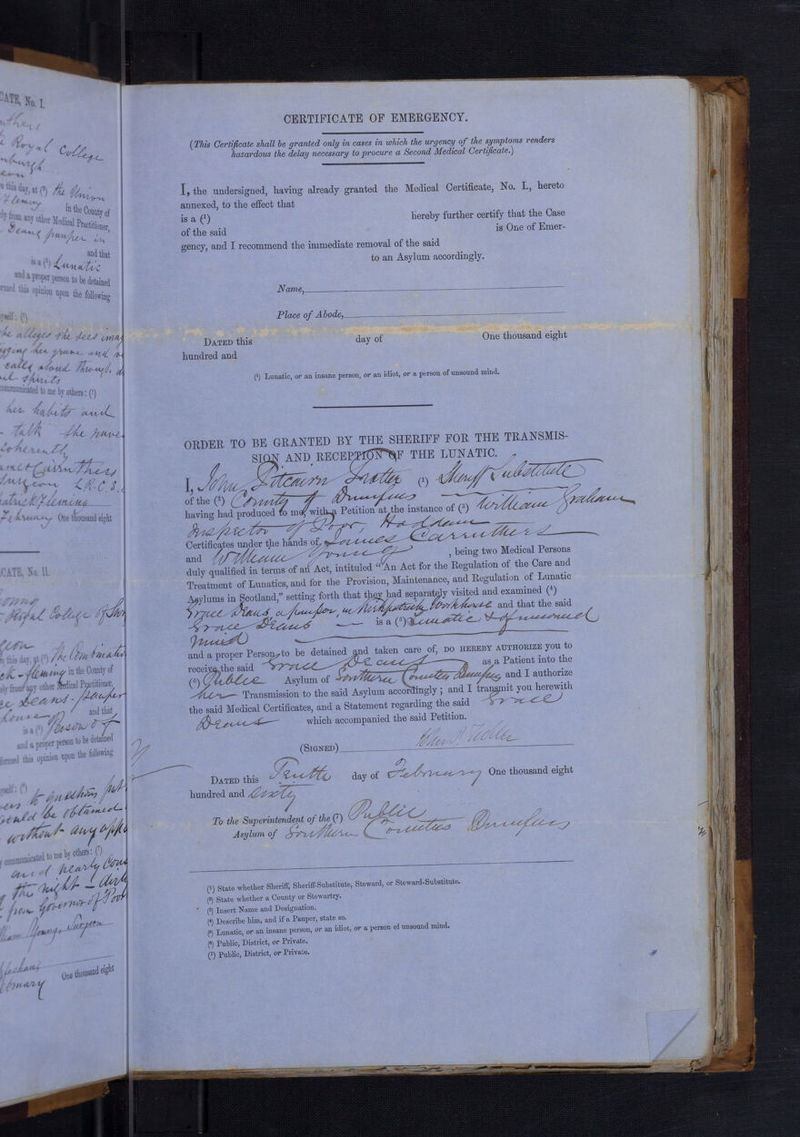 CATE, No. I.
Royal College
this day, at (2) the Union
in the County of
from any other Medical Practitioner,
and that
is a (3) Lunatic
and a proper person to be detained
this opinion upon the following
communicated to me by others: (2)
her habits and
One thousand eight
CATE, No. II.
in the County of
and that
and a proper person to be detained
formed this opinion upon the following
communicated to me by others: (2)
One thousand eight
CERTIFICATE OF EMERGENCY.
(This Certificate shall be granted only in cases in which the urgency of the symptoms renders
hazardous the delay necessary to procure a Second Medical Certificate.)
I, the undersigned, having already granted the Medical Certificate, No. I., hereto
annexed, to the effect that
is a (1) hereby further certify that the Case
of the said is One of Emer-
gency, and I recommend the immediate removal of the said
to an Asylum accordingly.
Name,
Place of Abode,
DATED this day of One thousand eight
hundred and
(1) Lunatic, or an insane person, or an idiot, or a person of unsound mind.
ORDER TO BE GRANTED BY THE SHERIFF FOR THE TRANSMIS-
SION AND RECEPTION OF THE LUNATIC.
I, John Pitcairn Trotter (1) Sheriff Substitute
of the (2) County of Dumfries
having had produced to me, with a Petition at the instance of (3) William Graham
Inspector of Poor, Hoddam
Certificates under the hands of James Carruthers
and William Young, being two Medical Persons
duly qualified in terms of an Act, intituled "An Act for the Regulation of the Care and
Treatment of Lunatics, and for the Provision, Maintenance, and Regulation of Lunatic
Asylums in Scotland," setting forth that they had separately visited and examined (4)
Grace Deans a pauper, in Kirkpatrick Workhouse and that the said
Grace Deans is a (5) Lunatic & of unsound
mind
and a proper Person to be detained and taken care of, DO HEREBY AUTHORIZE you to
receive the said Grace Deans as a Patient into the
(6) Public Asylum of Southern Counties Dumfries, and I authorize
her Transmission to the said Asylum accordingly; and I transmit you herewith
the said Medical Certificates, and a Statement regarding the said Grace
Deans which accompanied the said Petition.
(SIGNED) John P. Trotter
DATED this Tenth day of February One thousand eight
hundred and Sixty
To the Superintendent of the (7) Public
Asylum of Southern Counties Dumfries
(1) State whether Sheriff, Sheriff-Substitute, Steward, or Steward-Substitute.
(2) State whether a County or Stewartry.
(3) Insert Name and Designation.
(4) Describe him, and if a Pauper, state so.
(5) Lunatic, or an insane person, or an idiot, or a person of unsound mind.
(6) Public, District, or Private.
(7) Public, District, or Private.